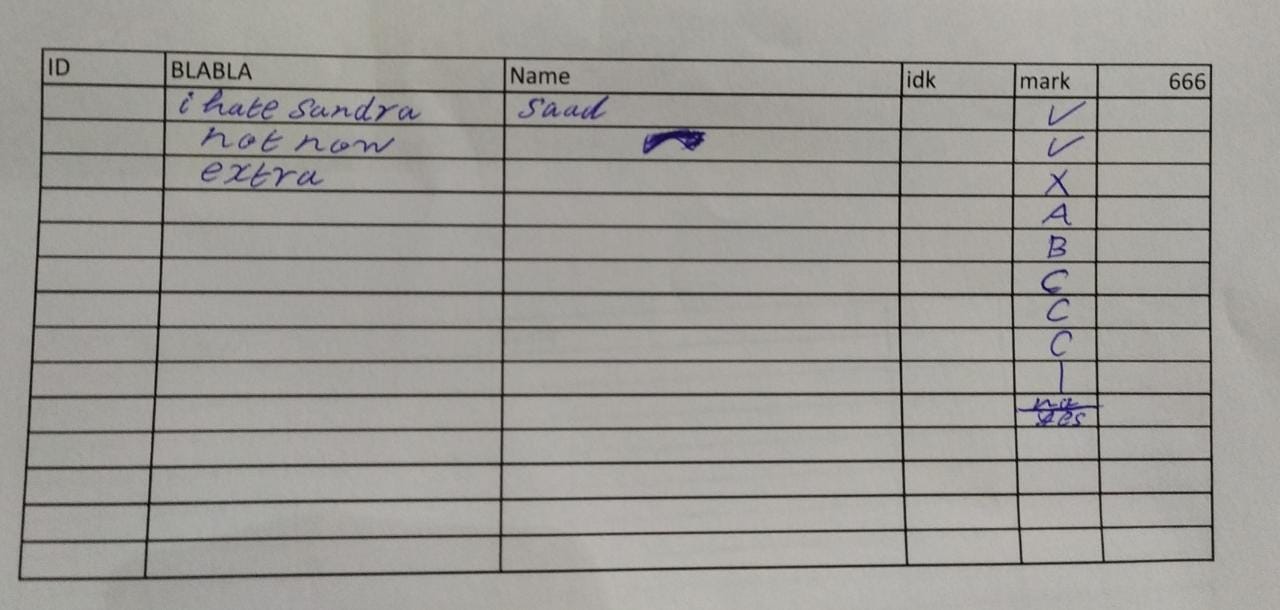 ID BLABLA Name idk mark 666
i hate sandra saad ✓
not now ✓
extra X
A
B
C
C
C
|
na
yes